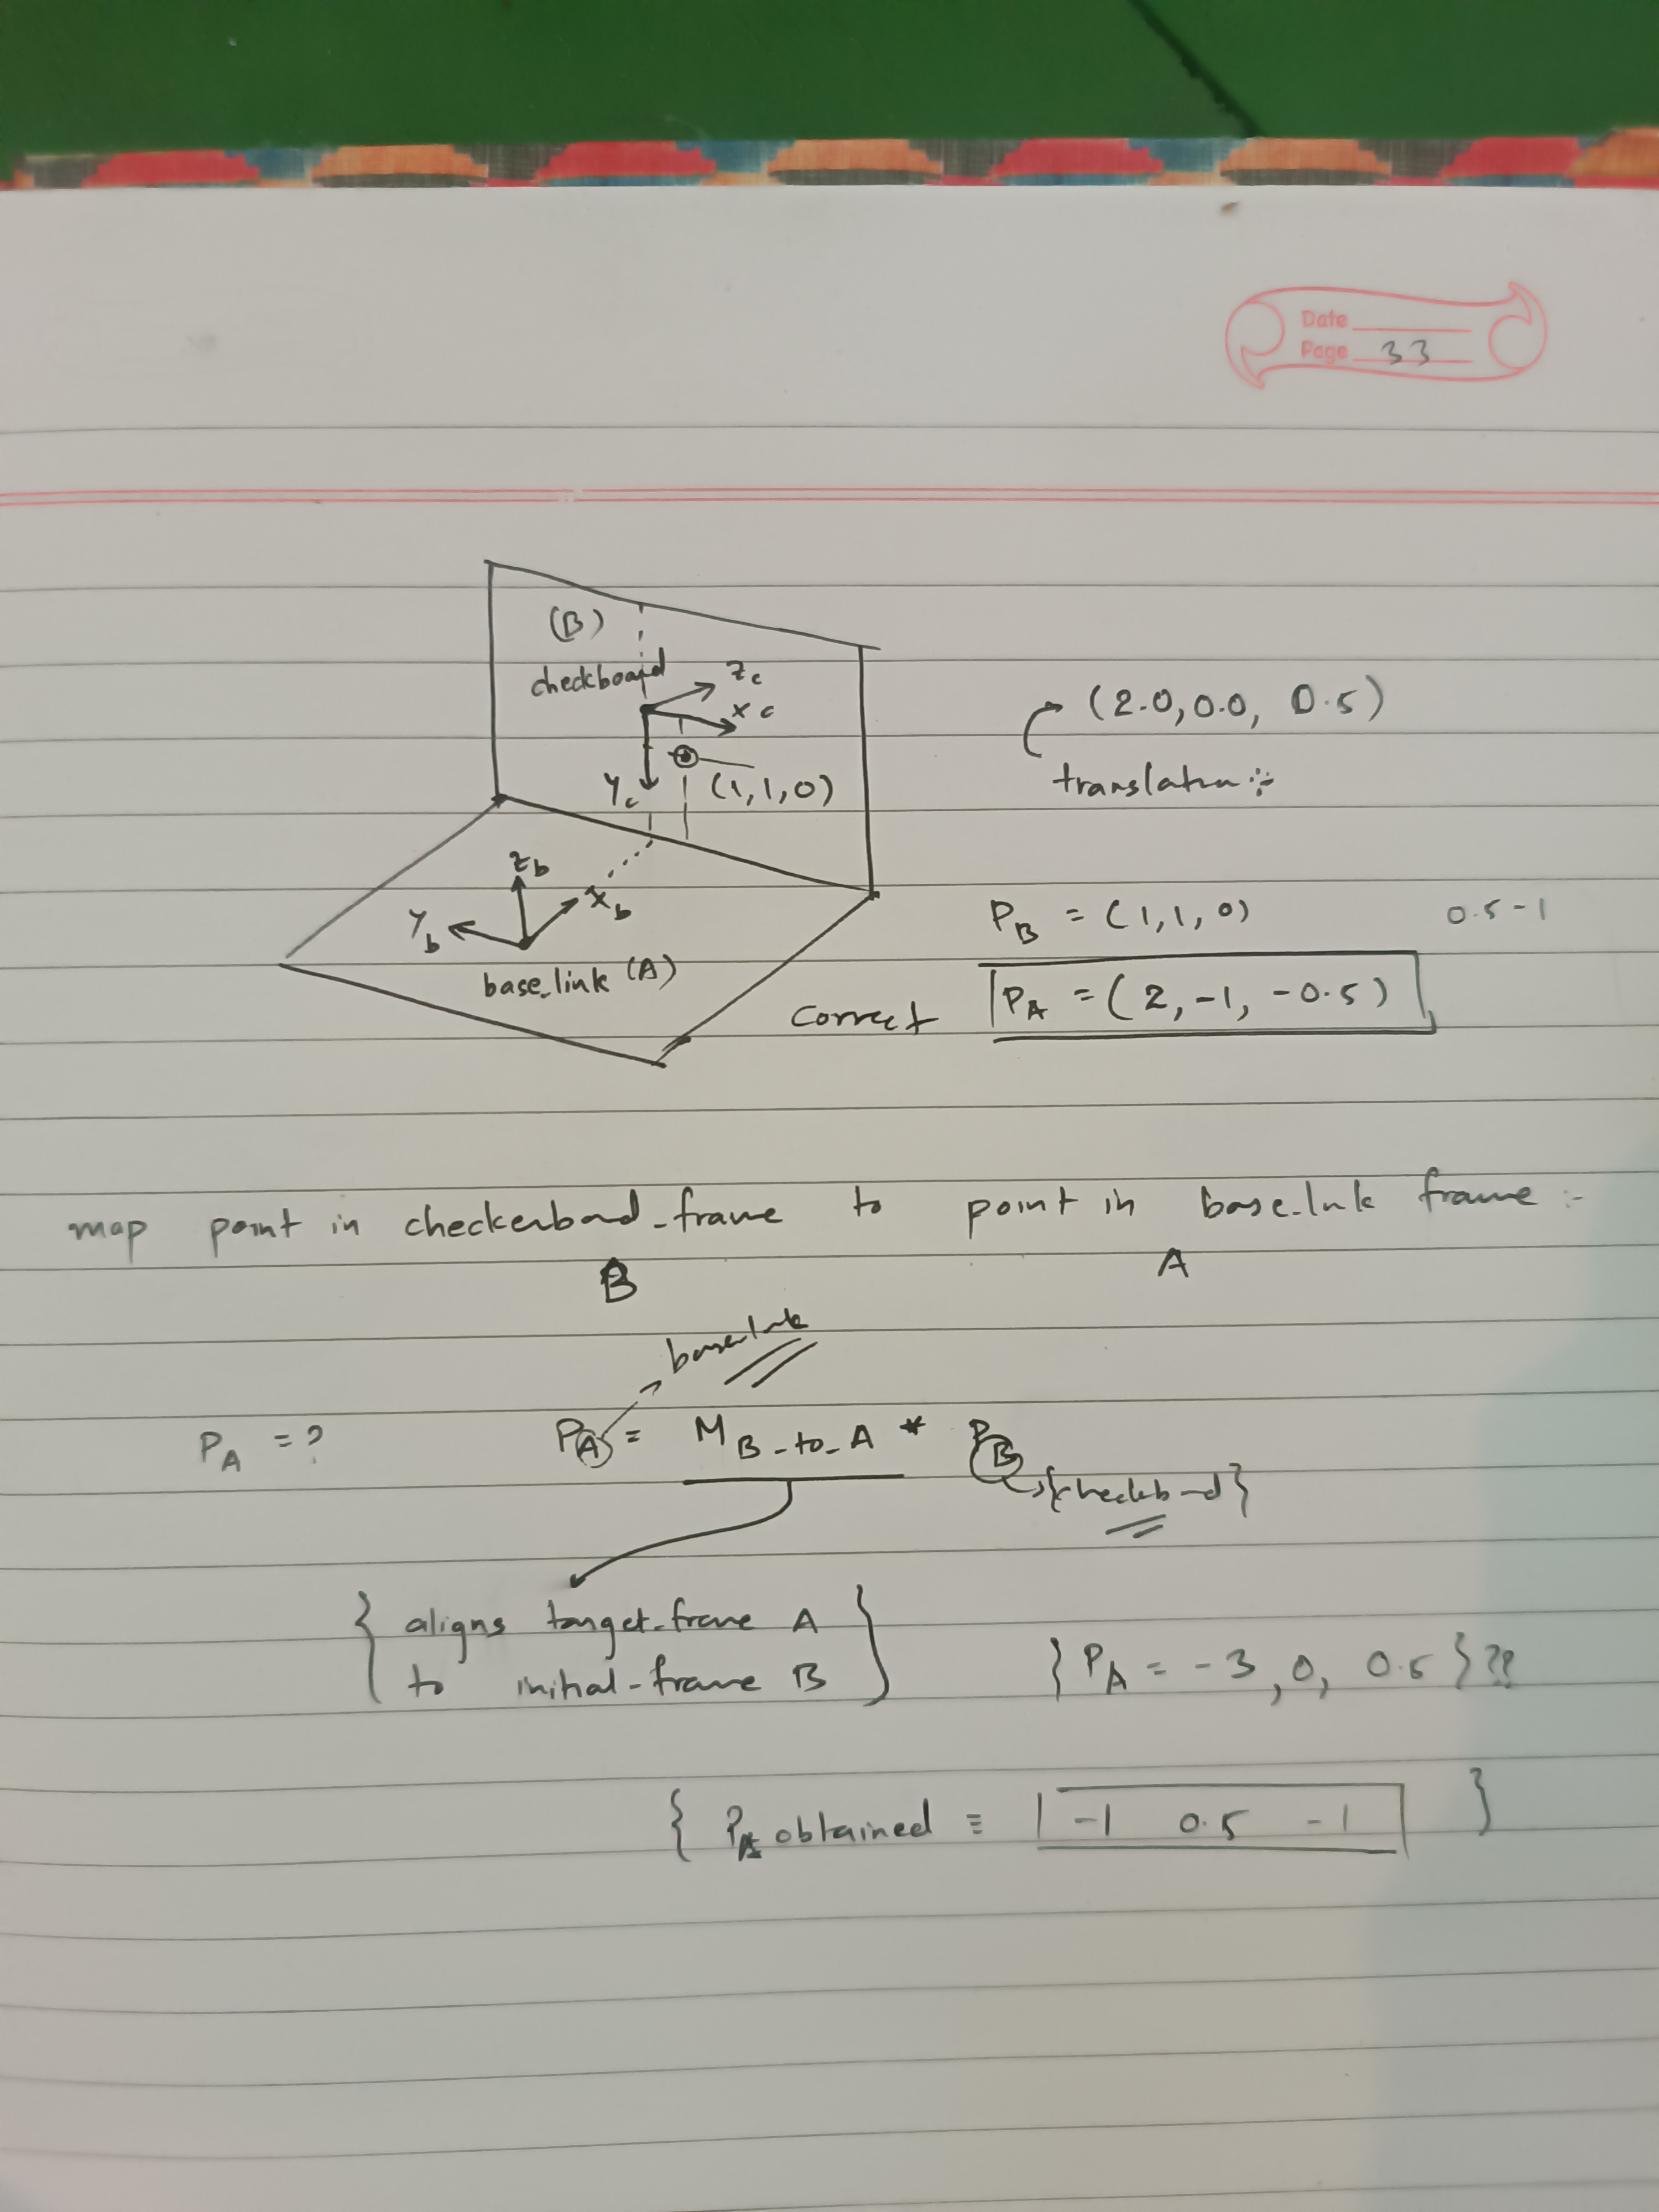 Date
Page 33
(B)
checkboard
Zc
Xc
Yc
(1,1,0)
(2.0, 0.0, 0.5)
Zb
Xb
Yb
base_link (A)
PB = (1,1,0)
0.5-1
Correct PA = (2, -1, -0.5)
map point in checkerboad_frame to point in base_link frame :-
B A
base_link
PA = ? PA = M B-to-A * PB
{ aligns target-frame A
to initial-frame B }
{ PA = -3, 0, 0.5 } ??
{ PA obtained = -1 0.5 -1 }